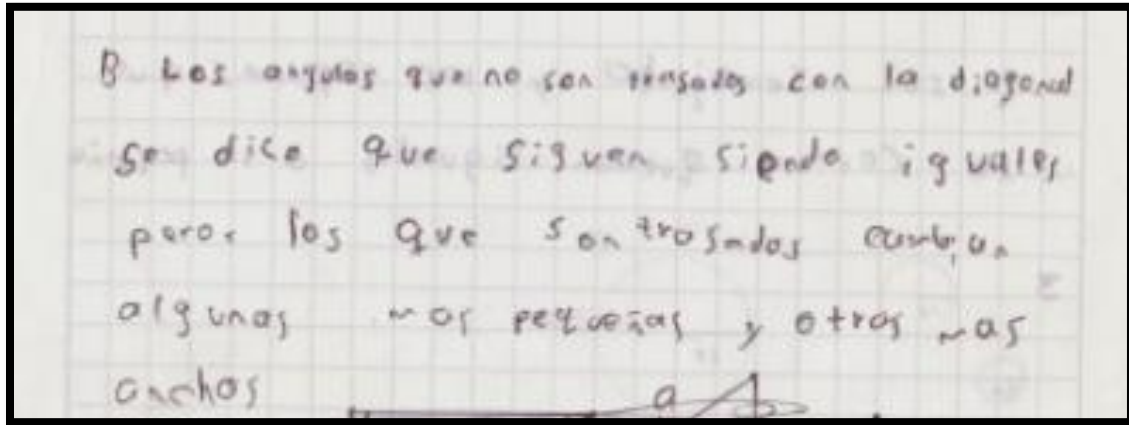 B Los angulos que no son trasados con la diagonal
se dice que siguen siendo iguales
pero los que son trasados cambian
algunas mas pequeñas y otros mas
anchos
a